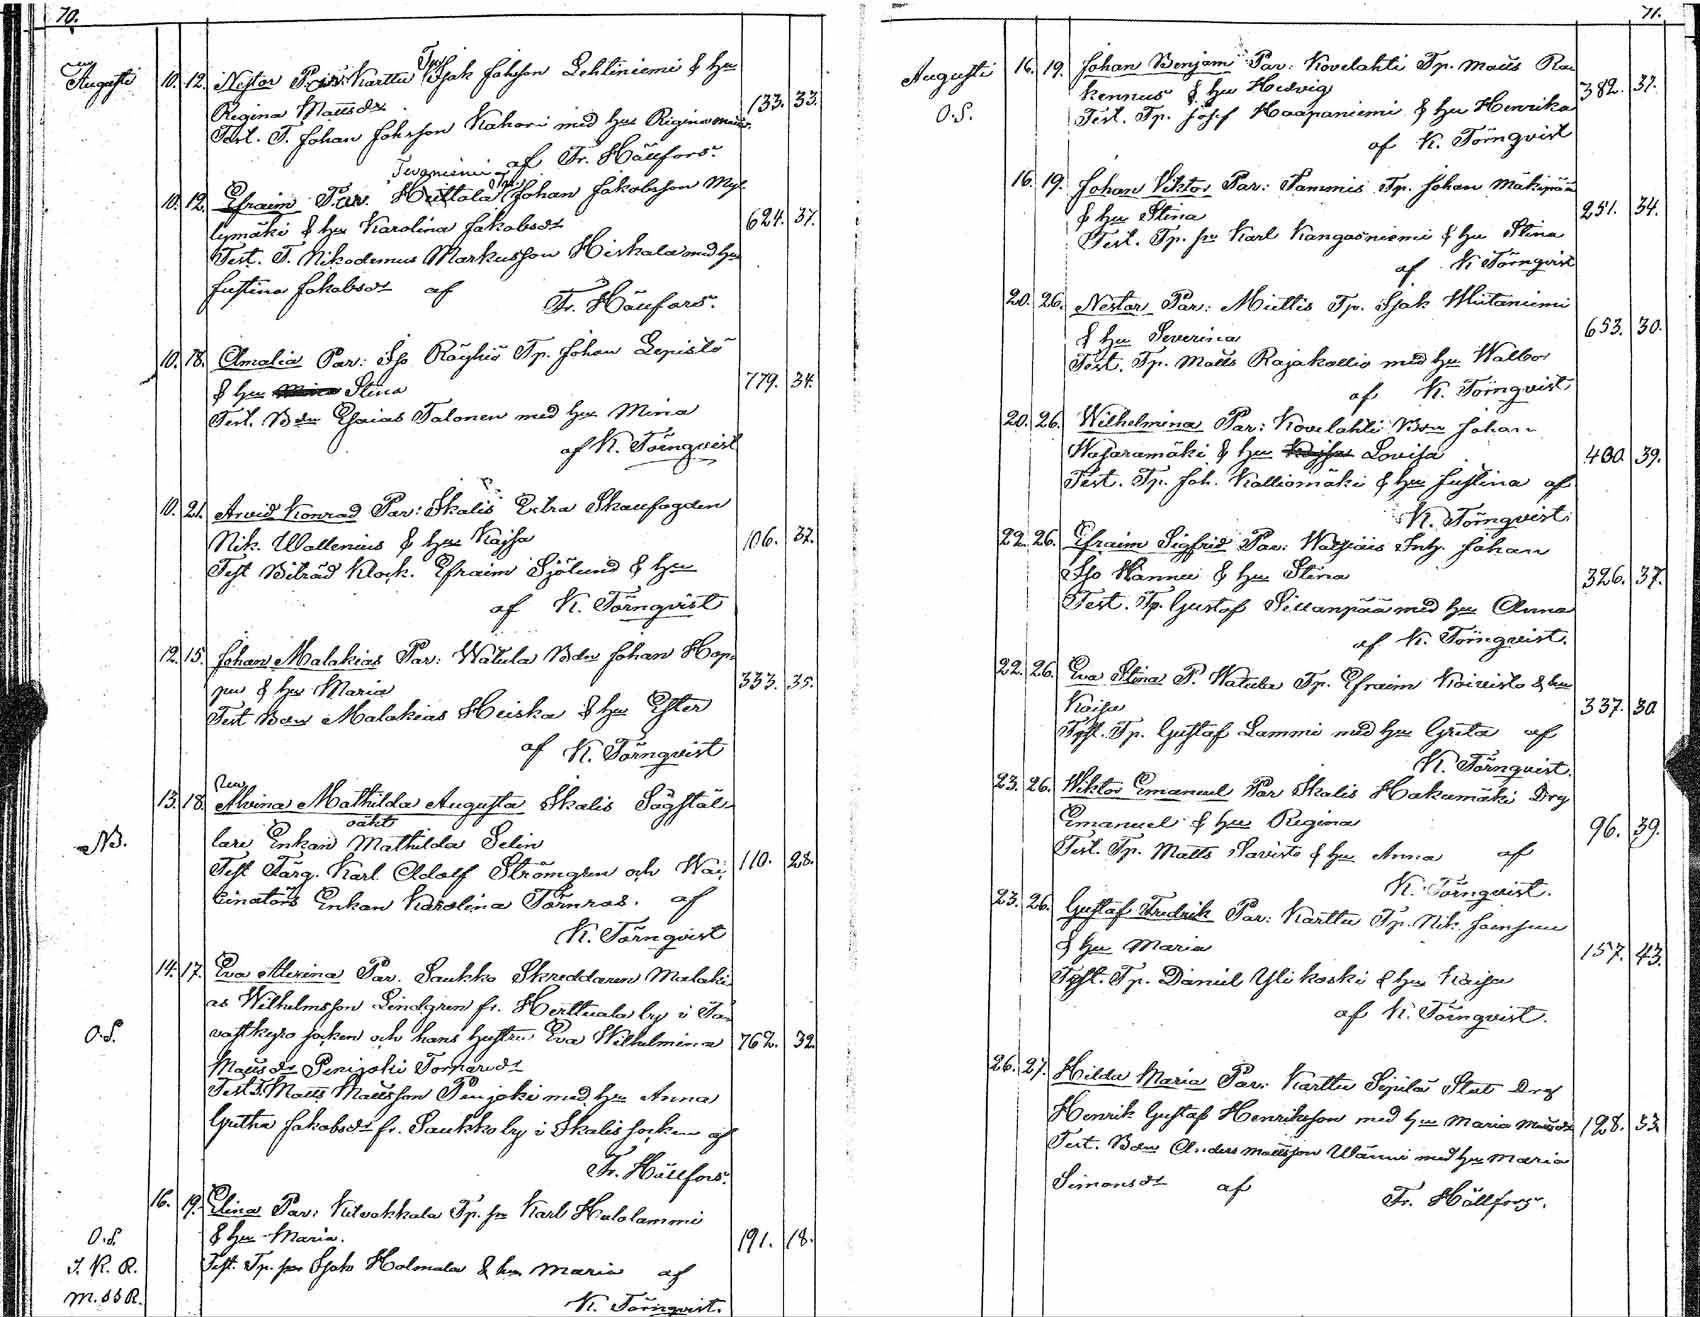 70.
Augusti 10. 12. Nestor Par: Karttu Tp. Isak Johsson Lehtiniemi & hu
Regina Mattsdr 133. 33.
Test. T. Johan Johsson Kahari med hu Regina Matts.
af Fr. Hällfors.
Tevaniemi
10. 12. Efraim Par. Huttala Tp. Johan Jakobsson Myl-
lymäki & hu Karolina Jakobsdr 624. 37.
Test. T. Nikodemus Markusson Hiskala med hu
Justina Jakobsdr af
Fr. Hällfors.
10. 18. Amalia Par: Iso Röyhiö Tp. Johan Lepistö
& hu Stina 779. 34.
Test. Bdn Esaias Talonen med hu Mina
af K. Törnqvist
10. 21. Arvid Konrad Par: Ikalis Extra Skaufogden
Nik. Wallenius & hu Kajsa 106. 37.
Test Biträd Klock. Efraim Sjölund & hu
af K. Törnqvist
12. 15. Johan Malakias Par: Watula Bdn Johan Hop-
pu & hu Maria 333. 35.
Test Bdn Malakias Heiska & hu Ester
af K. Törnqvist
13. 18. Alvina Mathilda Augusta Ikalis Sågstäl-
oäkt
NB. lare Enkan Mathilda Selin
Test Färg. Karl Adolf Strömgren och Wac- 110. 28.
cinatörs Enkan Karolina Törnros. af
K. Törnqvist
14. 17. Eva Alexina Par. Saukko Skreddaren Malaki-
as Wilhelmsson Lindgren fr. Herttuala by i Ta-
O.S. vastkyro socken och hans hustru Eva Wilhelmina 762. 32.
Mattsdr Penijoki Tornarudr
Test. T. Matts Mattsson Penjoki med hu Anna
Gretha Jakobsdr fr. Saukko by i Ikalis socken af
Fr. Hällfors.
16. 19. Elina Par: Kilvakkala Tp. Karl Hulolammi
O.S. & hu Maria. 191. 18.
I. K. R. Test. Tp. Isak Holmala & hu Maria af
M. SS R. K. Törnqvist.
71.
Augusti 16. 19. Johan Benjam Par: Kovelahti Tp. Matts Ra-
kennus & hu Hedvig 382. 37.
O.S. Test. Tp. Josef Haapaniemi & hu Henrika
af K. Törnqvist
16. 19. Johan Viktor Par: Sammis Tp. Johan Mäkipää
& hu Stina 251. 34.
Test. Tp. Karl Kangasniemi & hu Stina
af K Törnqvist
20. 26. Nestor Par: Miettis Tp. Isak Hiitaniemi
& hu Severina 653. 30.
Test. Tp. Matts Rajakallio med hu Walbor
af K. Törnqvist
20. 26. Wilhelmina Par: Kovelahti Bdn Johan
Wasaramäki & hu Lovisa 400. 39.
Test. Tp. Joh. Kalliomäki & hu Justina af
K. Törnqvist.
22. 26. Efraim Sigfrid Par: Inh. Johan
Iso Hannu & hu Stina 326. 37.
Test. Tp. Gustaf Sillanpää med hu Anna
af K. Törnqvist.
22. 26. Eva Stina P. Watula Tp. Efraim Koivisto & hu
Kaisa 337. 30.
Test. Tp. Gustaf Lammi med hu Greta af
K. Törnqvist.
23. 26. Wiktor Emanuel Par Ikalis Hakumäki Drg
Emanuel & hu Regina 96. 39.
Test. Tp. Matts Savisto & hu Anna af
K. Törnqvist.
23. 26. Gustaf Fredrik Par: Karttu Tp. Nik. Joensuu
& hu Maria 157. 43.
Test. Tp. Daniel Ylikoski & hu Kaisa
af K. Törnqvist.
26. 27. Hilda Maria Par: Karttu Sipilä Stat Drg
Henrik Gustaf Henriksson med hu Maria Mattsdr 128. 33
Test. Bdn Anders Mattsson Wänni med hu Maria
Simonsdr af Fr. Hällfors.